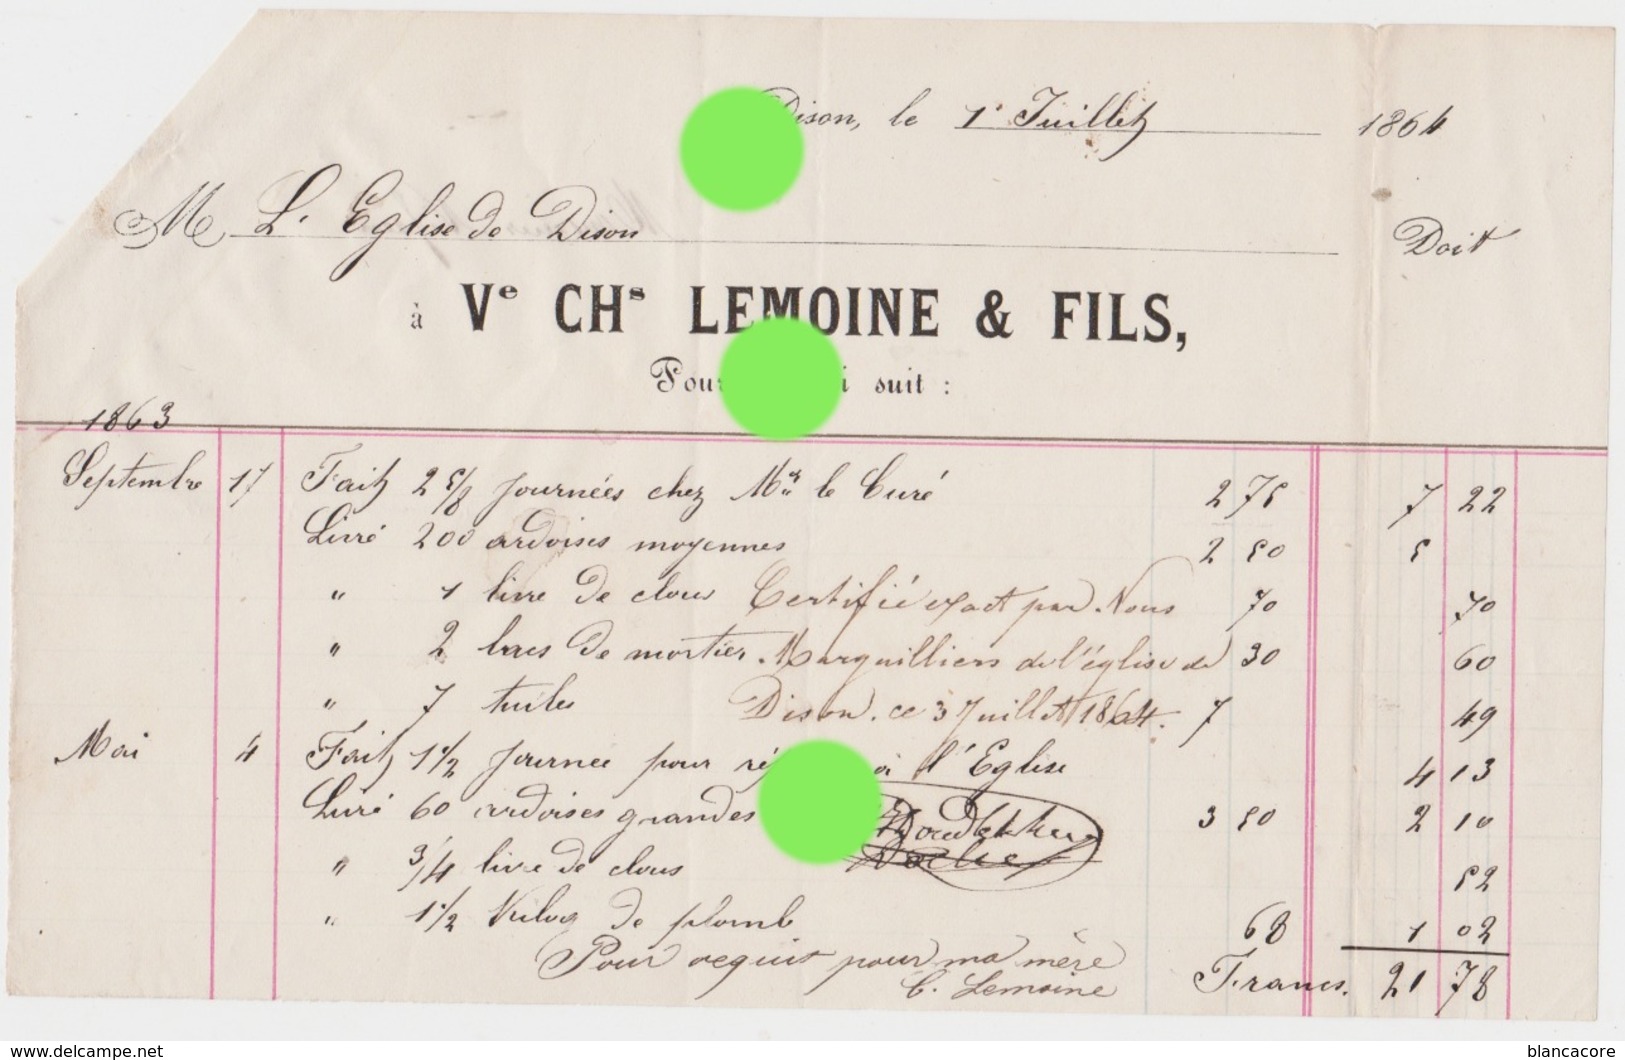 Dison, le 1r Juillet 1864
M L'Eglise de Dison Doit
à Ve CHs LEMOINE & FILS,
Pour suit :
1863
Septembre 17 Fait 2 5/8 journées chez Mr le Curé 2 75 7 22
Livré 200 ardoises moyennes 2 50 5
" 1 livre de clous 70 70
" 2 bacs de mortier 30 60
" 7 tuiles 7 49
Certifié exact par Nous
Marguilliers de l'église de
Dison, ce 3 Juillet 1864.
Mai 4 Fait 1 1/2 journee pour à l'Eglise 4 13
Livré 60 ardoises grandes 3 50 2 10
" 3/4 livre de clous 52
" 1 1/2 Kilog de plomb 68 1 02
Pour acquit pour ma mère
C. Lemoine
Francs. 21 78
www.delcampe.net
blancacore